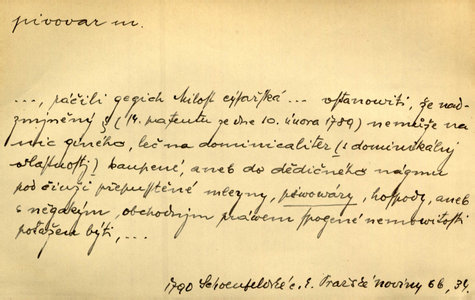 pivovar m.
..., ráčili gegich Milost cýsařská ... ustanowiti, že nad-
zmjněný § (14. patentu ze dne 10. února 1789) nemůže na
nic giného, leč na dominicaliter (: dominikálnj
wlastnosti) kaupené, aneb do dědičného nágmu
pod činži přepusstěné mleyny, piwowáry, hospody, aneb
s něgakým, obchodným práwem spogené nemowitosti
potažen býti, ...
1790 Schoenfeldské c. k. Pražské noviny 66, 34.